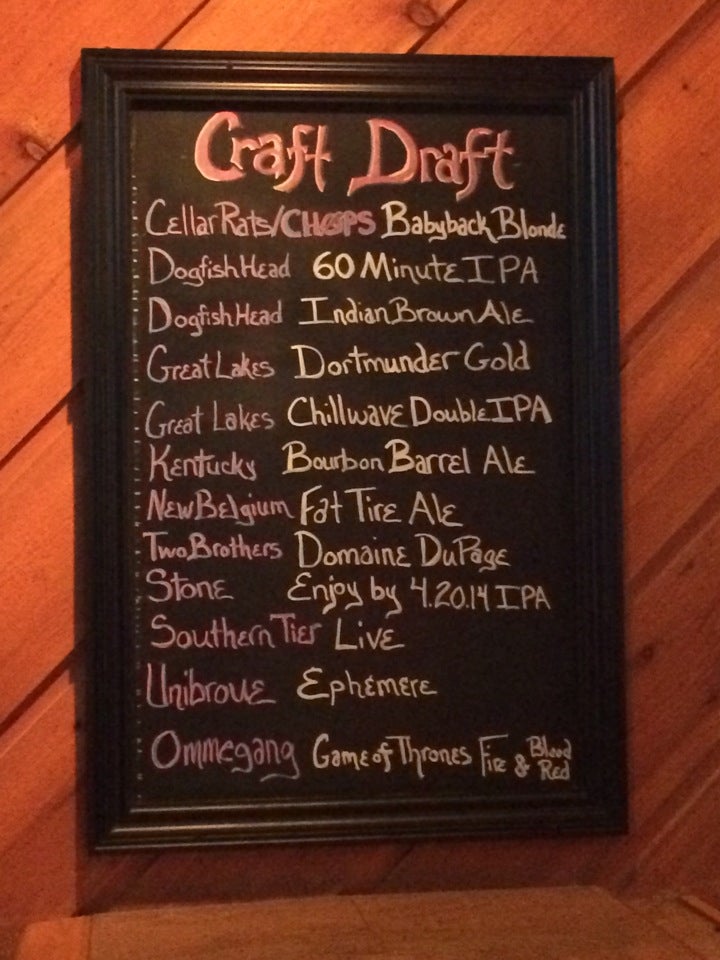 Craft Draft
CellarRats/CHOPS Babyback Blonde
Dogfish Head 60 Minute IPA
Dogfish Head Indian Brown Ale
Great Lakes Dortmunder Gold
Great Lakes Chillwave Double IPA
Kentucky Bourbon Barrel Ale
New Belgium Fat Tire Ale
Two Brothers Domaine DuPage
Stone Enjoy by 4.20.14 IPA
Southern Tier Live
Unibroue Ephemere
Ommegang Game of Thrones Fire & Blood Red